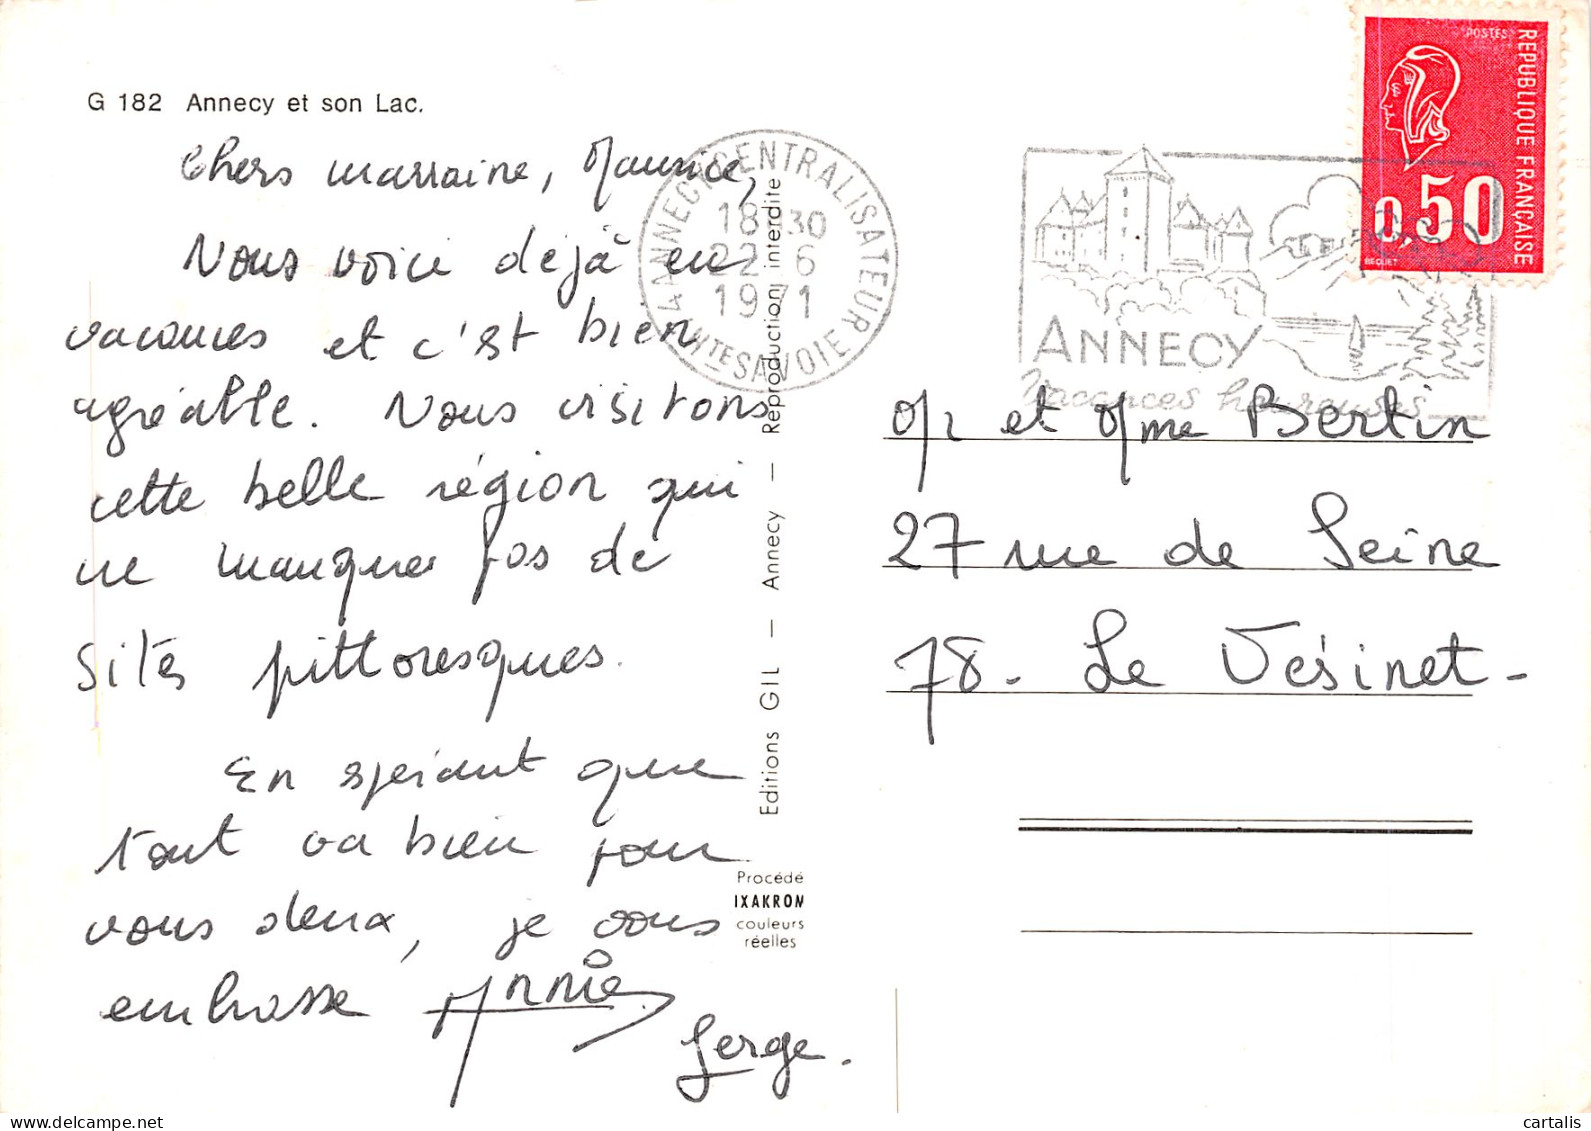 G 182 Annecy et son Lac.
Chers marraine, Maurice,
Nous voici déjà en
vacances et c'est bien
agréable. Nous visitons
cette belle région qui
ne manque pas de
sites pittoresques.
En espérant que
tout va bien pour
vous deux, je vous
embrasse Annie
Serge.
ANNECY CENTRALISATEUR
18H30
22-6
1971
HTE SAVOIE
Editions GIL — Annecy — Reproduction interdite
Procédé
IXAKRON
couleurs
réelles
ANNECY
Vacances heureuses
POSTES
REPUBLIQUE FRANÇAISE
0,50
BEQUET
Mr et Mme Bertin
27 rue de Seine
78 - Le Vésinet -
cartalis
https://www.delcampe.net